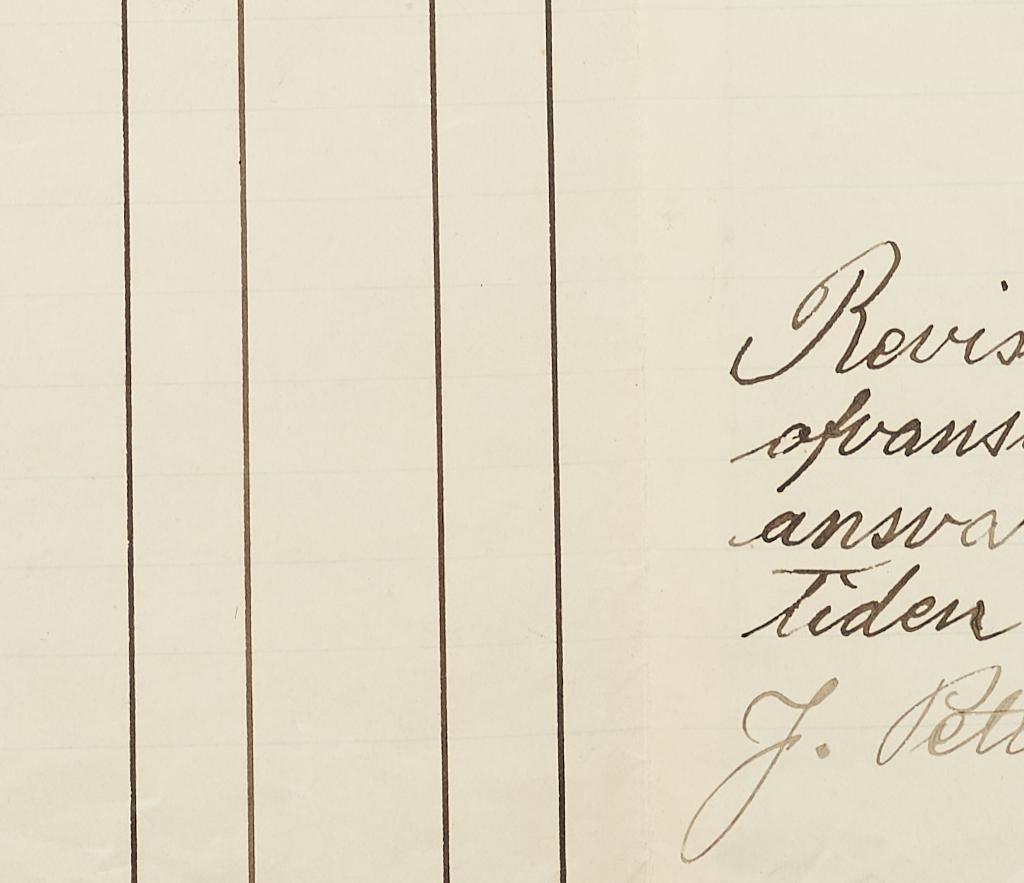 Revis
ofvans
ansva
Tiden
J. Pett